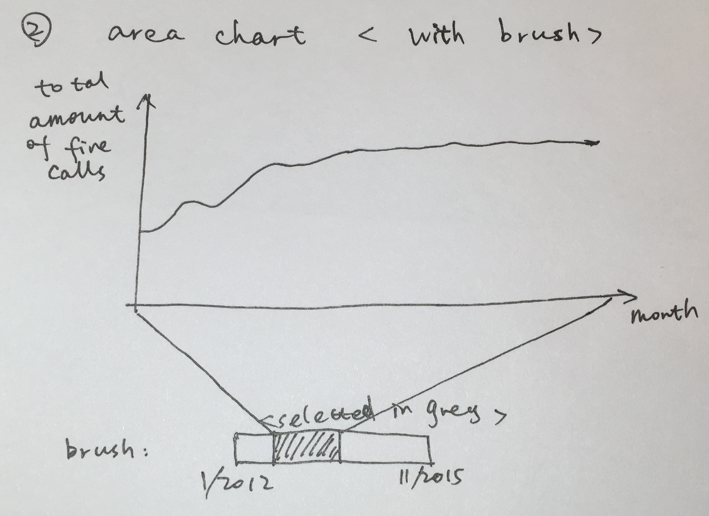 ② area chart < with brush>
total
amount
of fire
calls
month
<selected in grey >
brush:
1/2012 11/2015